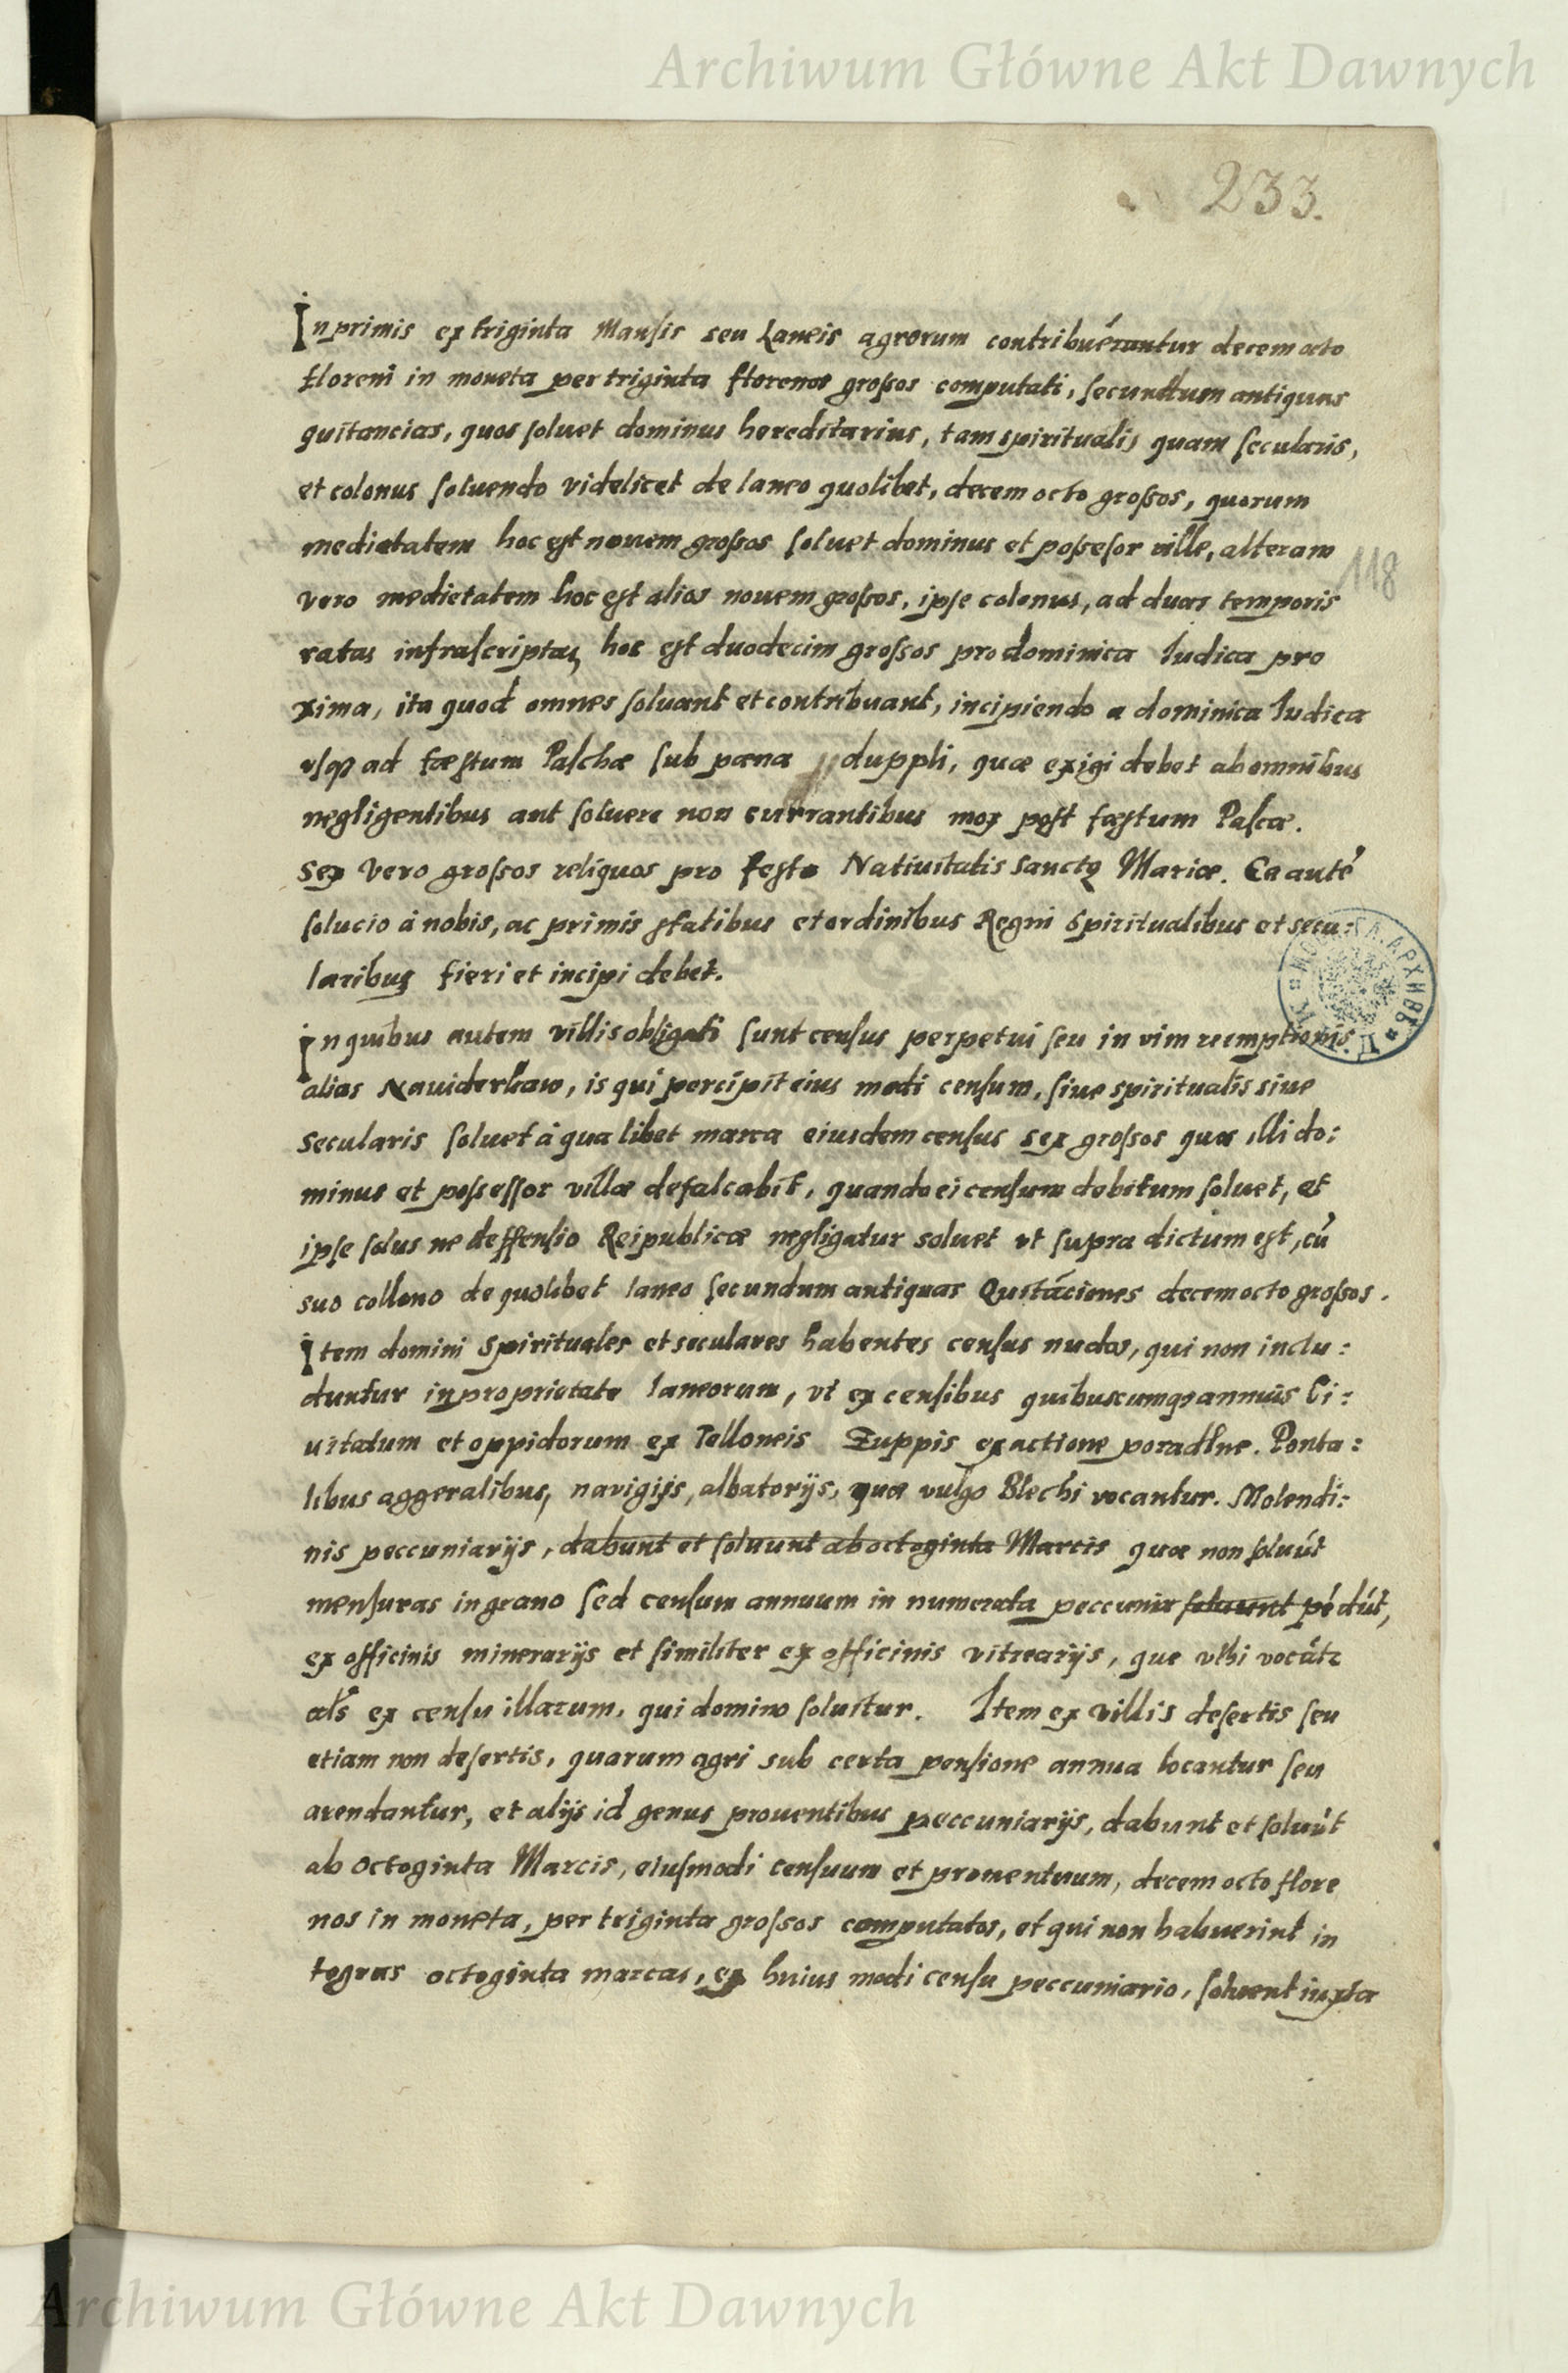 Archiwum Główne Akt Dawnych
233.
Inprimis ex triginta Mansis seu Laneis agrorum contribuérantur decem octo
floreni in moneta per triginta florenos grossos computati, secundum antiquas
quitancias, quos soluet dominus hereditarius, tam spiritualis quam secularis,
et colonus soluendo videlicet de laneo quolibet, decem octo grossos, quorum
medietatem hoc est nouem grossos soluet dominus et possesor ville, alteram
vero medietatem hoc est alios nouem grossos, ipse colonus, ad duas temporis
118
ratas infrascriptas, hoc est duodecim grossos pro dominica Iudica pro
xima, ita quod omnes soluant et contribuant, incipiendo a dominica Iudica
vsq3 ad fæstum Paschæ sub pœna duppli, quæ exigi debet ab omnibus
negligentibus aut soluere non currantibus mox post fæstum Pascæ.
Sex vero grossos reliquos pro festo Natiuitatis sanctę Mariæ. Ea auté
solucio à nobis, ac primis statibus et ordinibus Regni Spiritualibus et secu:
laribus fieri et incipi debet.
In quibus autem villis obligati sunt census perpetui seu in vim reemptionis
alias Nauiderkaw, is qui percipit eius modi censum, siue spiritualis siue
secularis soluet à qua libet marca eiusdem census sex grossos quos illi do:
minus et possessor villæ defalcabit, quando ei censum debitum soluet, et
ipse solus ne deffensio Reipublicæ negligatur soluet vt supra dictum est, cũ
suo collono de quolibet laneo secundum antiquas Quitáciones decem octo grossos.
Item domini Spirituales et seculares habentes census nudos, qui non inclu:
duntur in proprietate laneorum, vt ex censibus quibuscumq3 annuis Ci:
uitatum et oppidorum ex Telloneis Zuppis exactione poradlne. Ponta:
libus aggeralibus, navigijs, albatorijs, quæ vulgo Blechi vocantur. Molendi:
nis peccuniarijs, dabunt et soluunt ab octoginta Marcis quæ non soluút
mensuras in grano sed censum annuum in numerata peccunia soluunt pédút,
ex officinis minerarijs et similiter ex officinis vitrearijs, que vthi vocátr
als ex censu illarum, qui domino soluitur. Item ex villis desertis seu
etiam non desertis, quarum agri sub certa pensione annua locantur seu
arendantur, et alijs id genus prouentibus peccuniarijs, dabunt et soluút
ab octoginta Marcis, eiusmodi censuum et prouentuum, decem octo flore
nos in moneta, per triginta grossos computatos, et qui non habuerint in
tegras octoginta marcas, ex huius modi censu peccuniario, soluent iuxta
Archiwum Główne Akt Dawnych